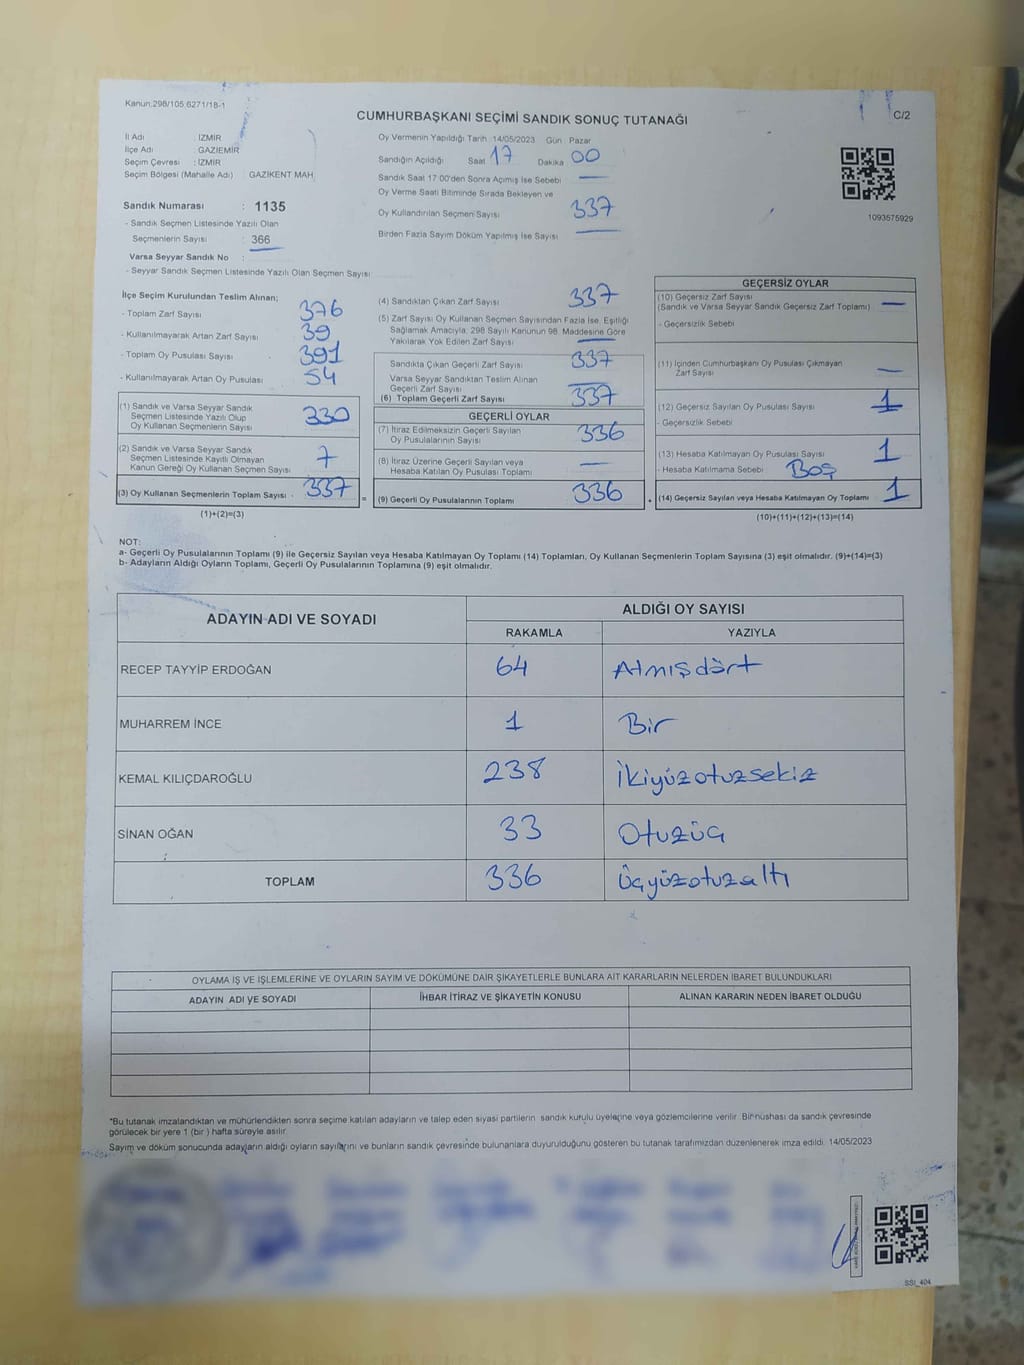 Kanun.298/105.6271/18-1
CUMHURBAŞKANI SEÇİMİ SANDIK SONUÇ TUTANAĞI
C/2
İl Adı : İZMİR
İlçe Adı : GAZİEMİR
Seçim Çevresi : İZMİR
Seçim Bölgesi (Mahalle Adı) : GAZİKENT MAH.
Sandık Numarası : 1135
- Sandık Seçmen Listesinde Yazılı Olan
Seçmenlerin Sayısı : 366
Varsa Seyyar Sandık No :
- Seyyar Sandık Seçmen Listesinde Yazılı Olan Seçmen Sayısı:
Oy Vermenin Yapıldığı Tarih : 14/05/2023 Gün : Pazar
Sandığın Açıldığı Saat 17 Dakika 00
Sandık Saat 17:00'den Sonra Açımış İse Sebebi —
Oy Verme Saati Bitiminde Sırada Bekleyen ve
Oy Kullandırılan Seçmen Sayısı 337
Birden Fazla Sayım Döküm Yapılmış İse Sayısı —
1093575929
İlçe Seçim Kurulundan Teslim Alınan;
- Toplam Zarf Sayısı 376
- Kullanılmayarak Artan Zarf Sayısı 39
- Toplam Oy Pusulası Sayısı 391
- Kullanılmayarak Artan Oy Pusulası 54
(1) Sandık ve Varsa Seyyar Sandık
Seçmen Listesinde Yazılı Olup
Oy Kullanan Seçmenlerin Sayısı 330
(2) Sandık ve Varsa Seyyar Sandık
Seçmen Listesinde Kayıtlı Olmayan
Kanun Gereği Oy Kullanan Seçmen Sayısı 7
(3) Oy Kullanan Seçmenlerin Toplam Sayısı 337 =
(1)+(2)=(3)
(4) Sandıktan Çıkan Zarf Sayısı 337
(5) Zarf Sayısı Oy Kullanan Seçmen Sayısından Fazla İse, Eşitliği
Sağlamak Amacıyla, 298 Sayılı Kanunun 98. Maddesine Göre
Yakılarak Yok Edilen Zarf Sayısı —
Sandıkta Çıkan Geçerli Zarf Sayısı 337
Varsa Seyyar Sandıktan Teslim Alınan
Geçerli Zarf Sayısı —
(6) Toplam Geçerli Zarf Sayısı 337
GEÇERLİ OYLAR
(7) İtiraz Edilmeksizin Geçerli Sayılan
Oy Pusulalarının Sayısı 336
(8) İtiraz Üzerine Geçerli Sayılan veya
Hesaba Katılan Oy Pusulası Toplamı —
(9) Geçerli Oy Pusulalarının Toplamı 336 +
GEÇERSİZ OYLAR
(10) Geçersiz Zarf Sayısı
(Sandık ve Varsa Seyyar Sandık Geçersiz Zarf Toplamı) —
- Geçersizlik Sebebi
(11) İçinden Cumhurbaşkanı Oy Pusulası Çıkmayan
Zarf Sayısı —
(12) Geçersiz Sayılan Oy Pusulası Sayısı 1
- Geçersizlik Sebebi
(13) Hesaba Katılmayan Oy Pusulası Sayısı 1
- Hesaba Katılmama Sebebi Boş
(14) Geçersiz Sayılan veya Hesaba Katılmayan Oy Toplamı 1
(10)+(11)+(12)+(13)=(14)
NOT:
a- Geçerli Oy Pusulalarının Toplamı (9) ile Geçersiz Sayılan veya Hesaba Katılmayan Oy Toplamı (14) Toplamları, Oy Kullanan Seçmenlerin Toplam Sayısına (3) eşit olmalıdır. (9)+(14)=(3)
b- Adayların Aldığı Oyların Toplamı, Geçerli Oy Pusulalarının Toplamına (9) eşit olmalıdır.
ADAYIN ADI VE SOYADI
ALDIĞI OY SAYISI
RAKAMLA YAZIYLA
RECEP TAYYİP ERDOĞAN 64 Atmışdört
MUHARREM İNCE 1 Bir
KEMAL KILIÇDAROĞLU 238 İkiyüzotuzsekiz
SİNAN OĞAN 33 Otuzüç
TOPLAM 336 Üçyüzotuzaltı
OYLAMA İŞ VE İŞLEMLERİNE VE OYLARIN SAYIM VE DÖKÜMÜNE DAİR ŞİKAYETLERLE BUNLARA AİT KARARLARIN NELERDEN İBARET BULUNDUKLARI
ADAYIN ADI VE SOYADI İHBAR İTİRAZ VE ŞİKAYETİN KONUSU ALINAN KARARIN NEDEN İBARET OLDUĞU
*Bu tutanak imzalandıktan ve mühürlendikten sonra seçime katılan adayların ve talep eden siyasi partilerin sandık kurulu üyelerine veya gözlemcilerine verilir. Bir nüshası da sandık çevresinde
görülecek bir yere 1 (bir ) hafta süreyle asılır.
Sayım ve döküm sonucunda adayların aldığı oyların sayılarını ve bunların sandık çevresinde bulunanlara duyurulduğunu gösteren bu tutanak tarafımızdan düzenlenerek imza edildi. 14/05/2023
SSI_404